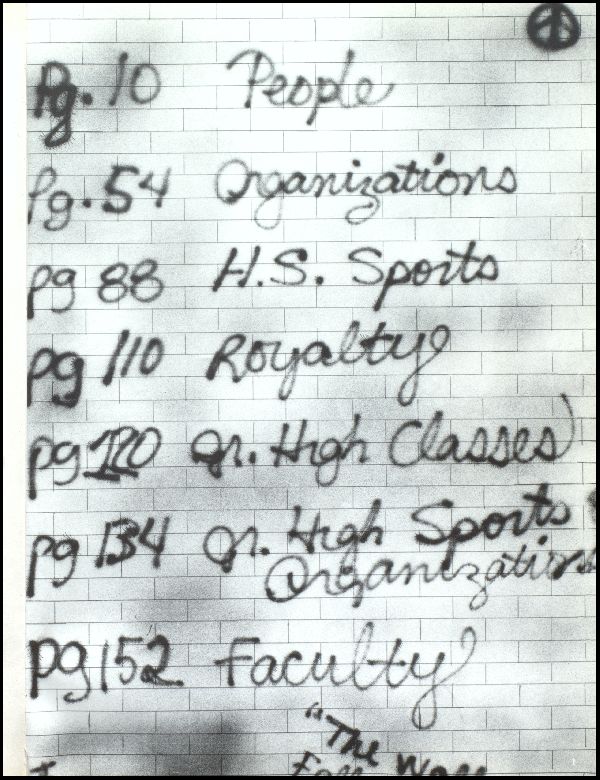 Pg. 10 People
Pg. 54 Organizations
pg 88 H.S. Sports
pg 110 Royalty
pg 120 Jr. High Classes
pg 134 Jr. High Sports
Organizations
pg 152 Faculty
"The
Wall